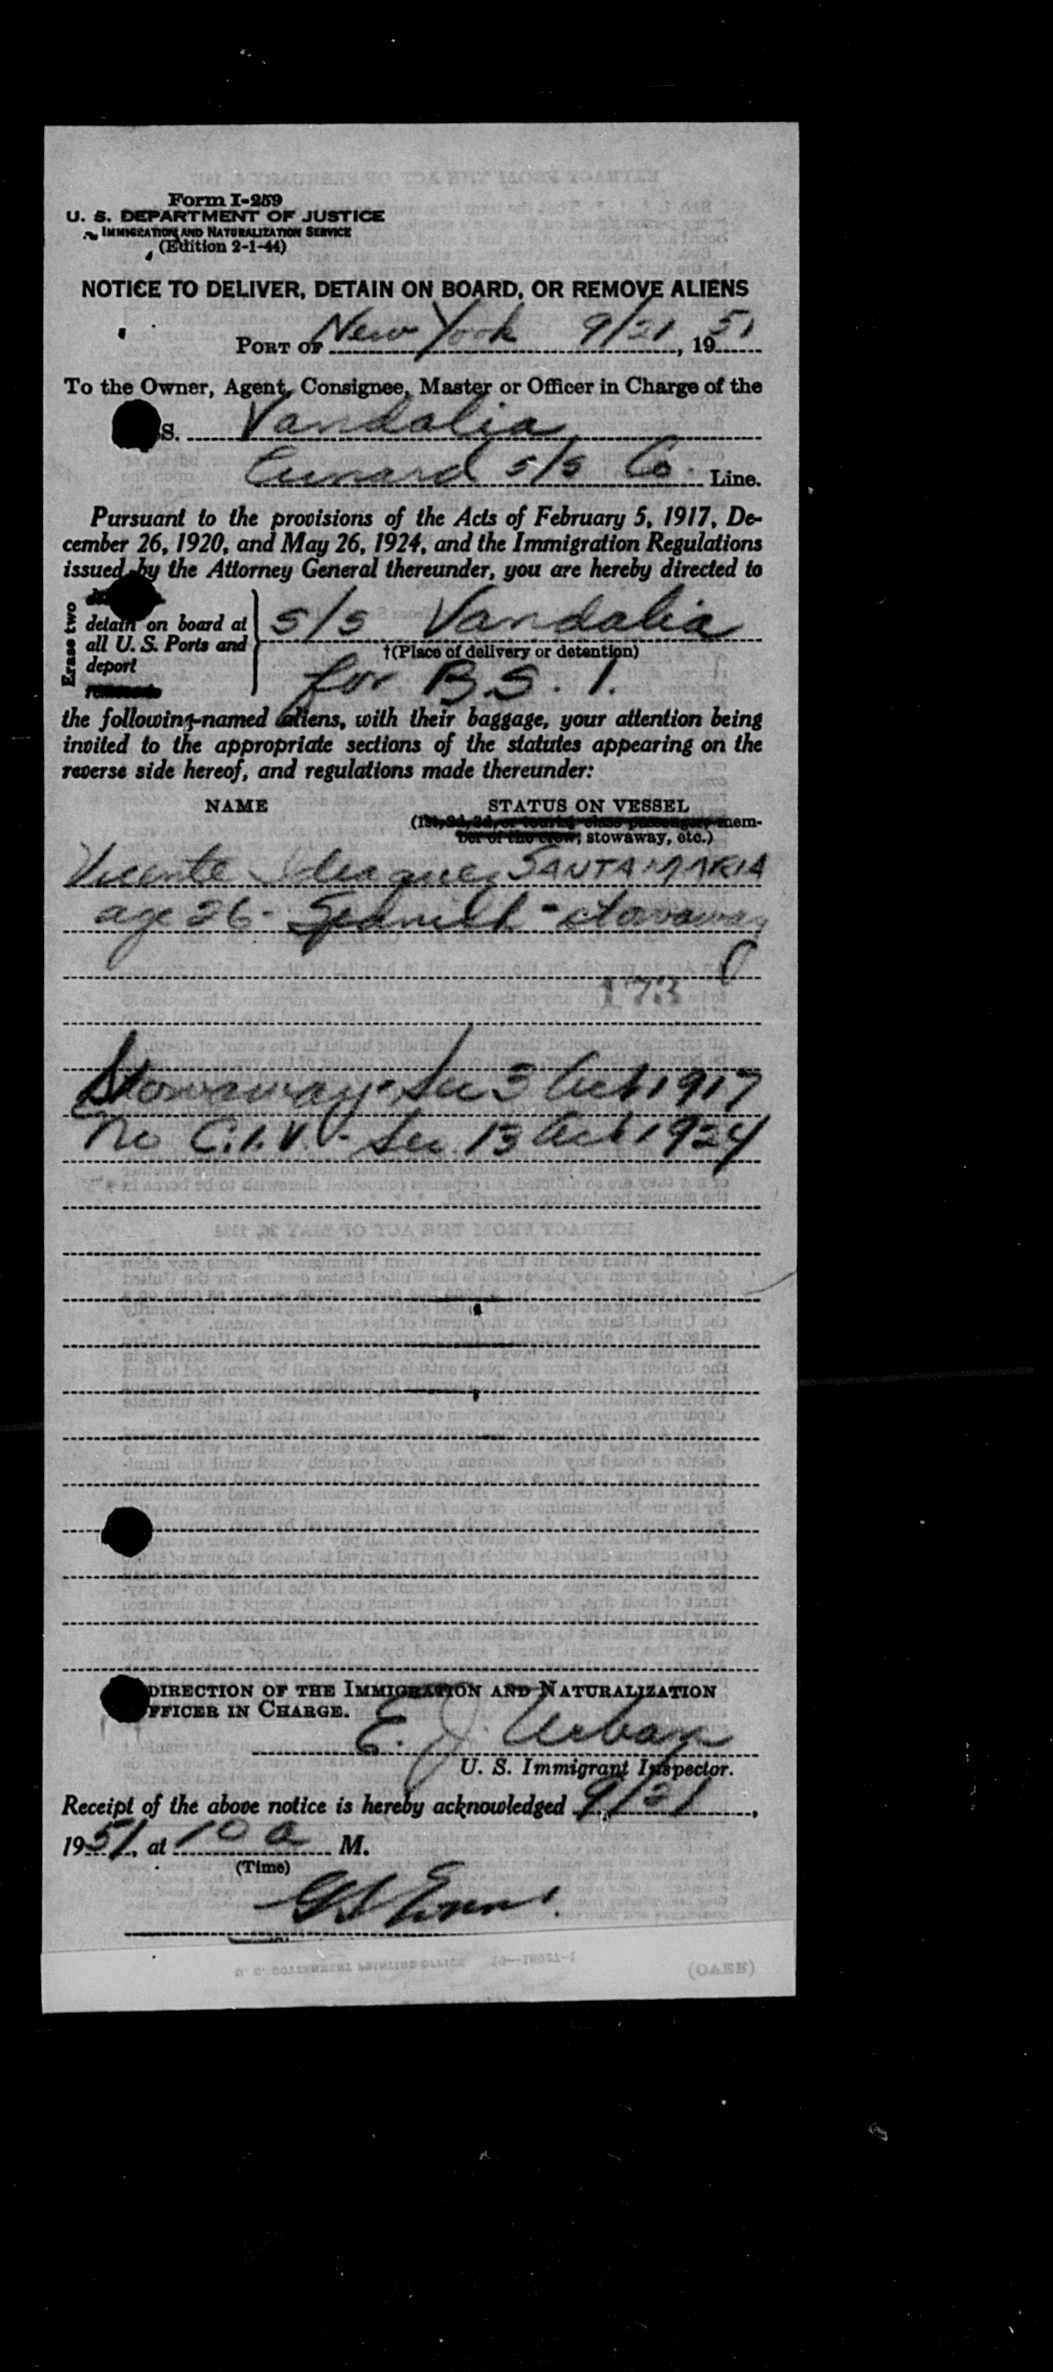 Form I-259
U. S. DEPARTMENT OF JUSTICE
IMMIGRATION AND NATURALIZATION SERVICE
(Edition 2-1-44)
NOTICE TO DELIVER, DETAIN ON BOARD, OR REMOVE ALIENS
PORT OF New York 9/21, 1951
To the Owner, Agent, Consignee, Master or Officer in Charge of the
S. Vandalia
Cunard S/S Co. Line.
Pursuant to the provisions of the Acts of February 5, 1917, De-
cember 26, 1920, and May 26, 1924, and the Immigration Regulations
issued by the Attorney General thereunder, you are hereby directed to
Erase two
detain on board at
all U. S. Ports and
deport
S/S Vandalia
†(Place of delivery or detention)
for B.S.I.
the following-named aliens, with their baggage, your attention being
invited to the appropriate sections of the statutes appearing on the
reverse side hereof, and regulations made thereunder:
NAME STATUS ON VESSEL
(1st, 2d, 3d, or tourist class passenger, mem-
ber of the crew, stowaway, etc.)
Vicente SANTAMARIA
age 26 - Spanish - stowaway
173
Stowaway - Sec 3 Act 1917
No C.I.V. - Sec. 13 Act 1924
DIRECTION OF THE IMMIGRATION AND NATURALIZATION
OFFICER IN CHARGE.
E. J. Urban
U. S. Immigrant Inspector.
Receipt of the above notice is hereby acknowledged 9/21,
1951, at 10 a M.
(Time)